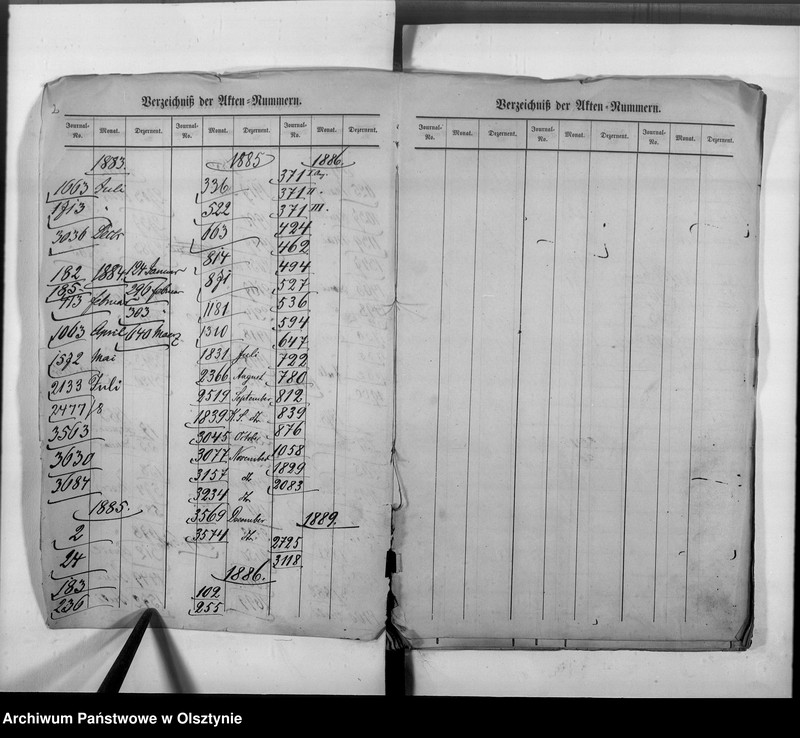 Verzeichniß der Akten-Nummern.
Journal-No. Monat. Dezernent. Journal-No. Monat. Dezernent. Journal-No. Monat. Dezernent.
1883.
1663 Juli
1913 "
3036 Decbr
182 1884 194 Januar
185 296 februar
913 februar 303 "
1003 April 640 Maerz
1592 Mai
2133 Juli
2477 /8
3563
3639
3684
1885.
2
24
183
236
1885
336
522
163
814
891
1181
1310
1831 Juli
2366 August
2519 September
1839
3045 October
3077 November
3157 do
3234 do
3569 December
3574 do
1886.
102
255
1886.
371 I
371 II.
371 III.
424
462
494
527
536
594
647
722
780
812
839
876
1058
1829
2083
1889.
2725
3118
Verzeichniß der Akten-Nummern.
Journal-No. Monat. Dezernent. Journal-No. Monat. Dezernent. Journal-No. Monat. Dezernent.
Archiwum Państwowe w Olsztynie